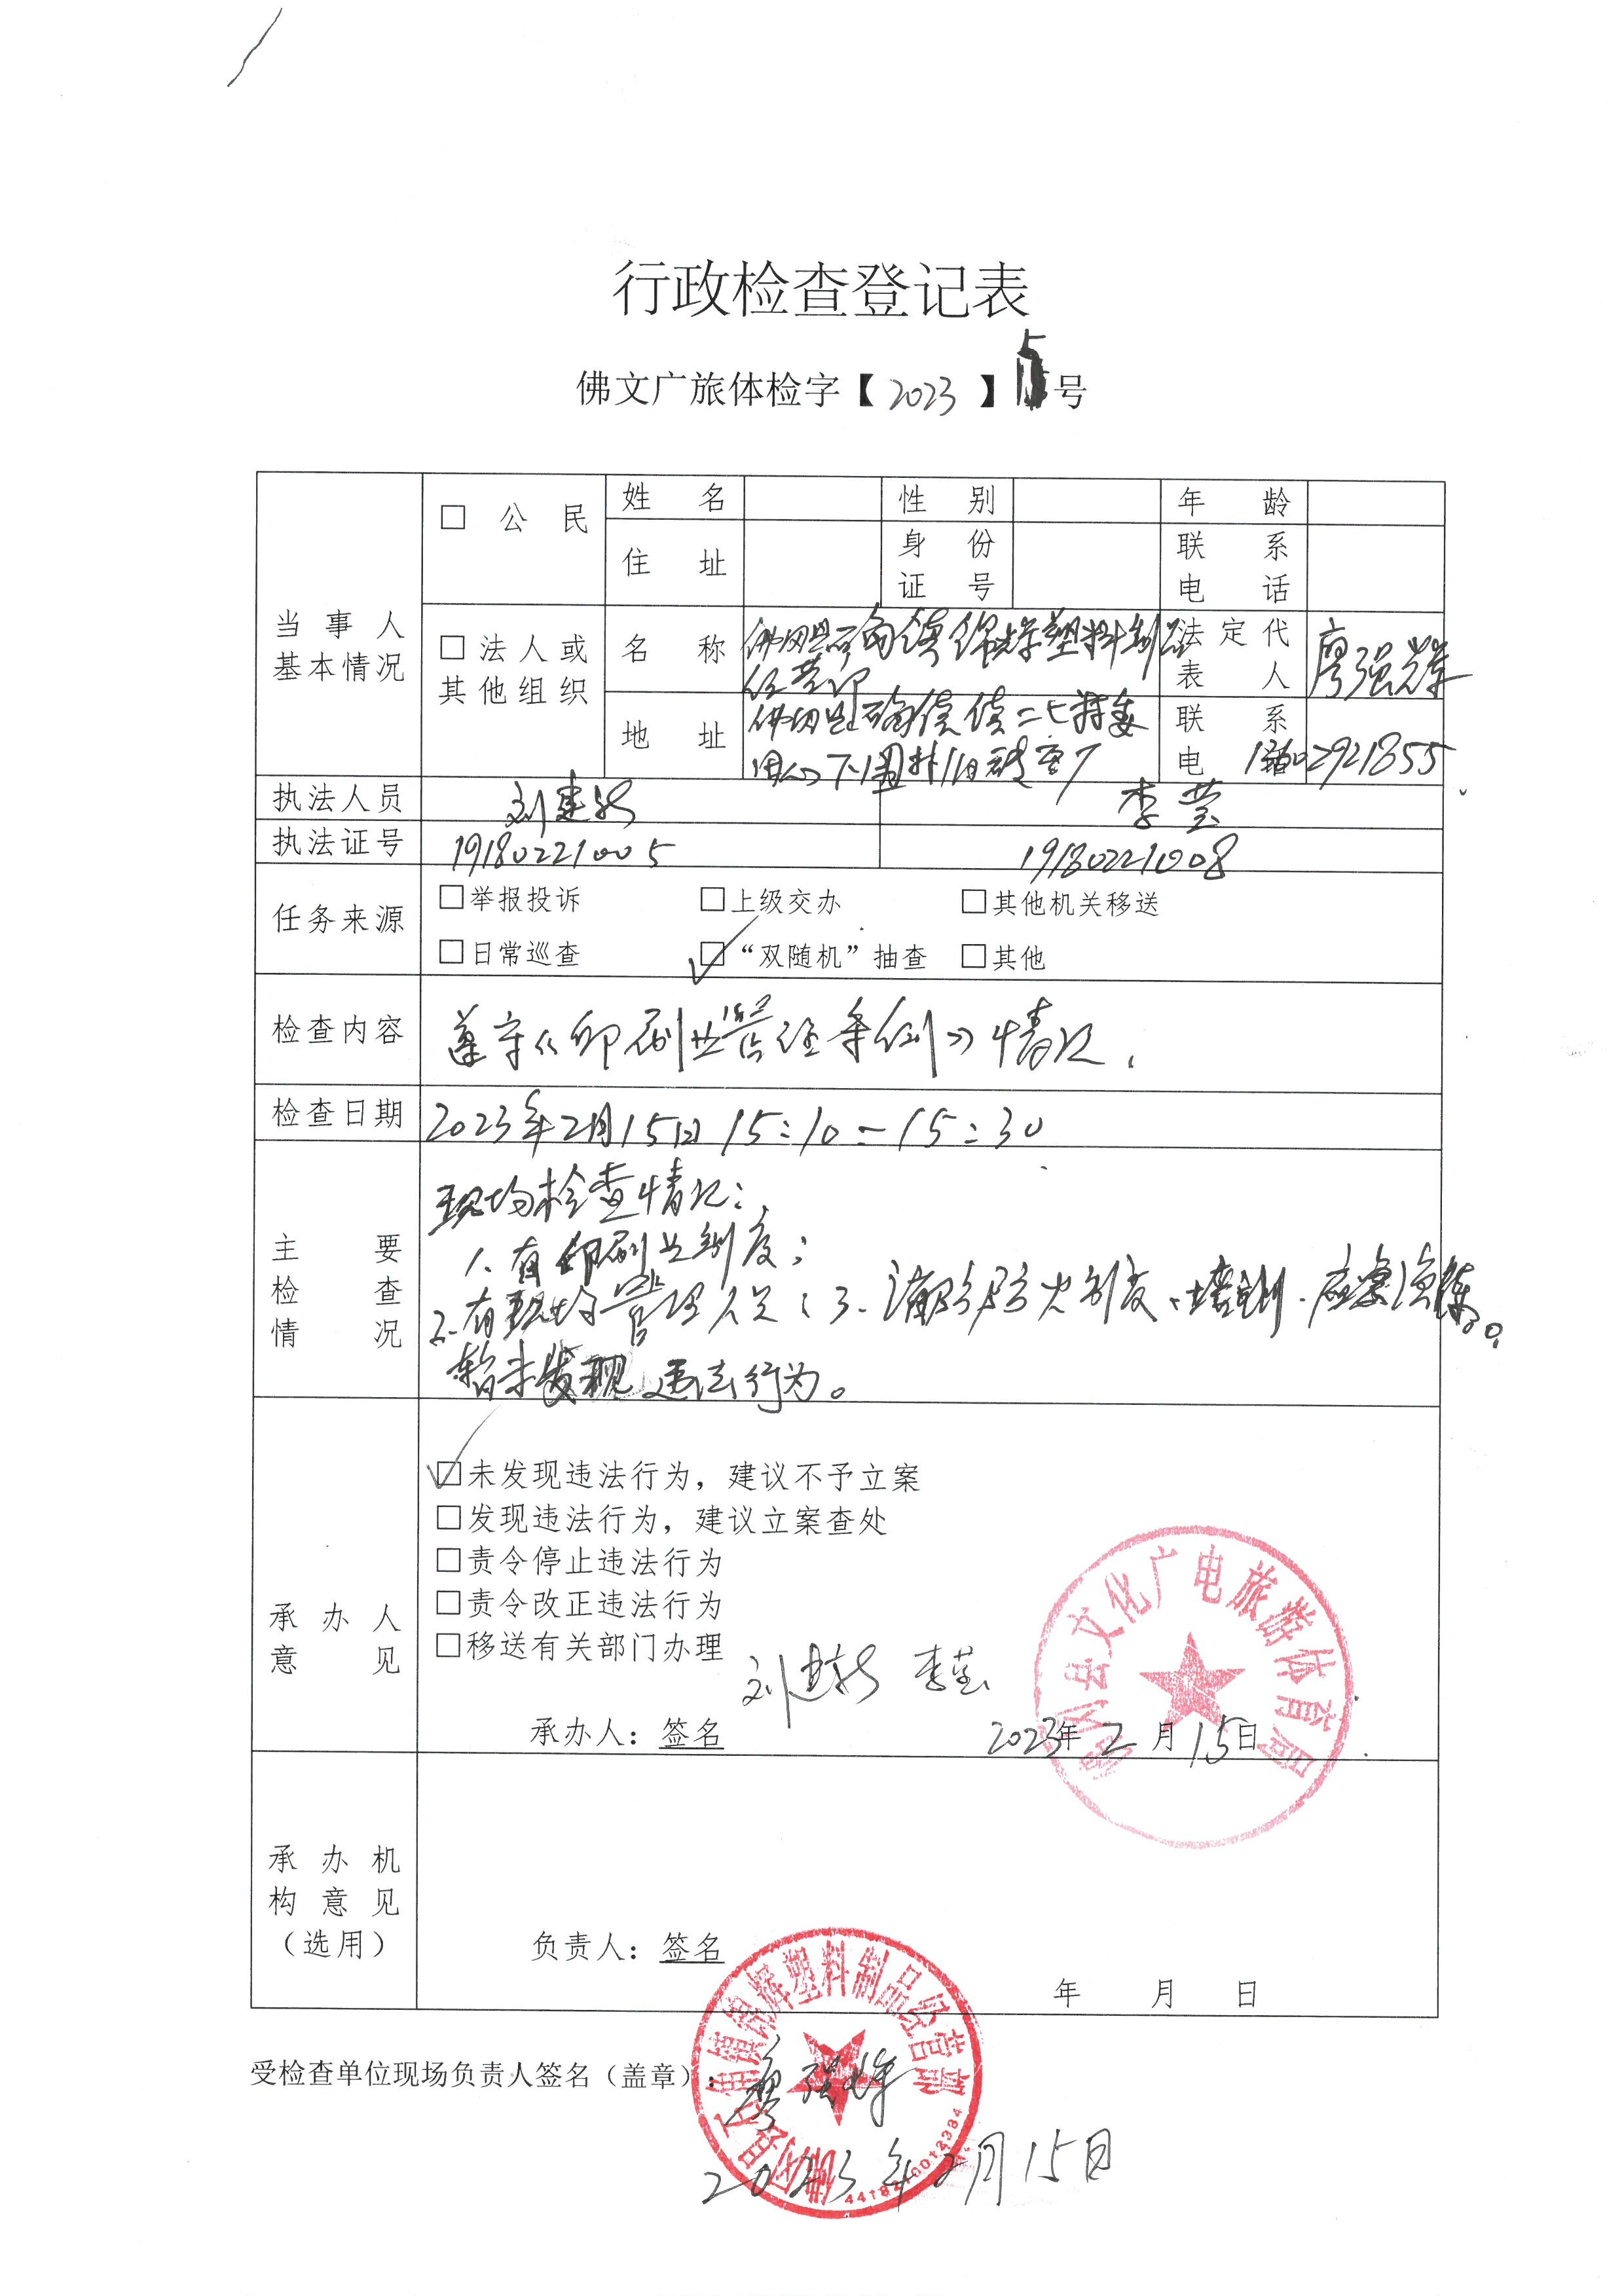 行政检查登记表
佛文广旅体检字【2023】5号
当事人基本情况
□ 公民
姓名
性别
年龄
住址
身份证号
联系电话
□法人或其他组织
名称
佛冈县石角镇锦辉塑料制品
经营部
法定代表人
廖强辉
地址
佛冈县石角镇
联系电
13602921855
执法人员
刘建
李莹
执法证号
19180221005
19180221008
任务来源
□举报投诉 □上级交办 □其他机关移送
□日常巡查 ☑“双随机”抽查 □其他
检查内容
遵守《印刷业管理条例》情况.
检查日期
2023年2月15日 15:10-15:30
主要检查情况
现场检查情况:
1、有印刷业制度;
2、有现场管理人员;3、消防防火制度、培训、应急演练。
暂未发现违法行为。
承办人意见
☑未发现违法行为，建议不予立案
□发现违法行为，建议立案查处
□责令停止违法行为
□责令改正违法行为
□移送有关部门办理
刘建 李莹
承办人：签名
2023年2月15日
佛冈县文化广电旅游体育局
承办机构意见（选用）
负责人：签名
年 月 日
受检查单位现场负责人签名（盖章）：
廖强辉
佛冈县石角镇锦辉塑料制品经营部
4418210012384
2023年2月15日